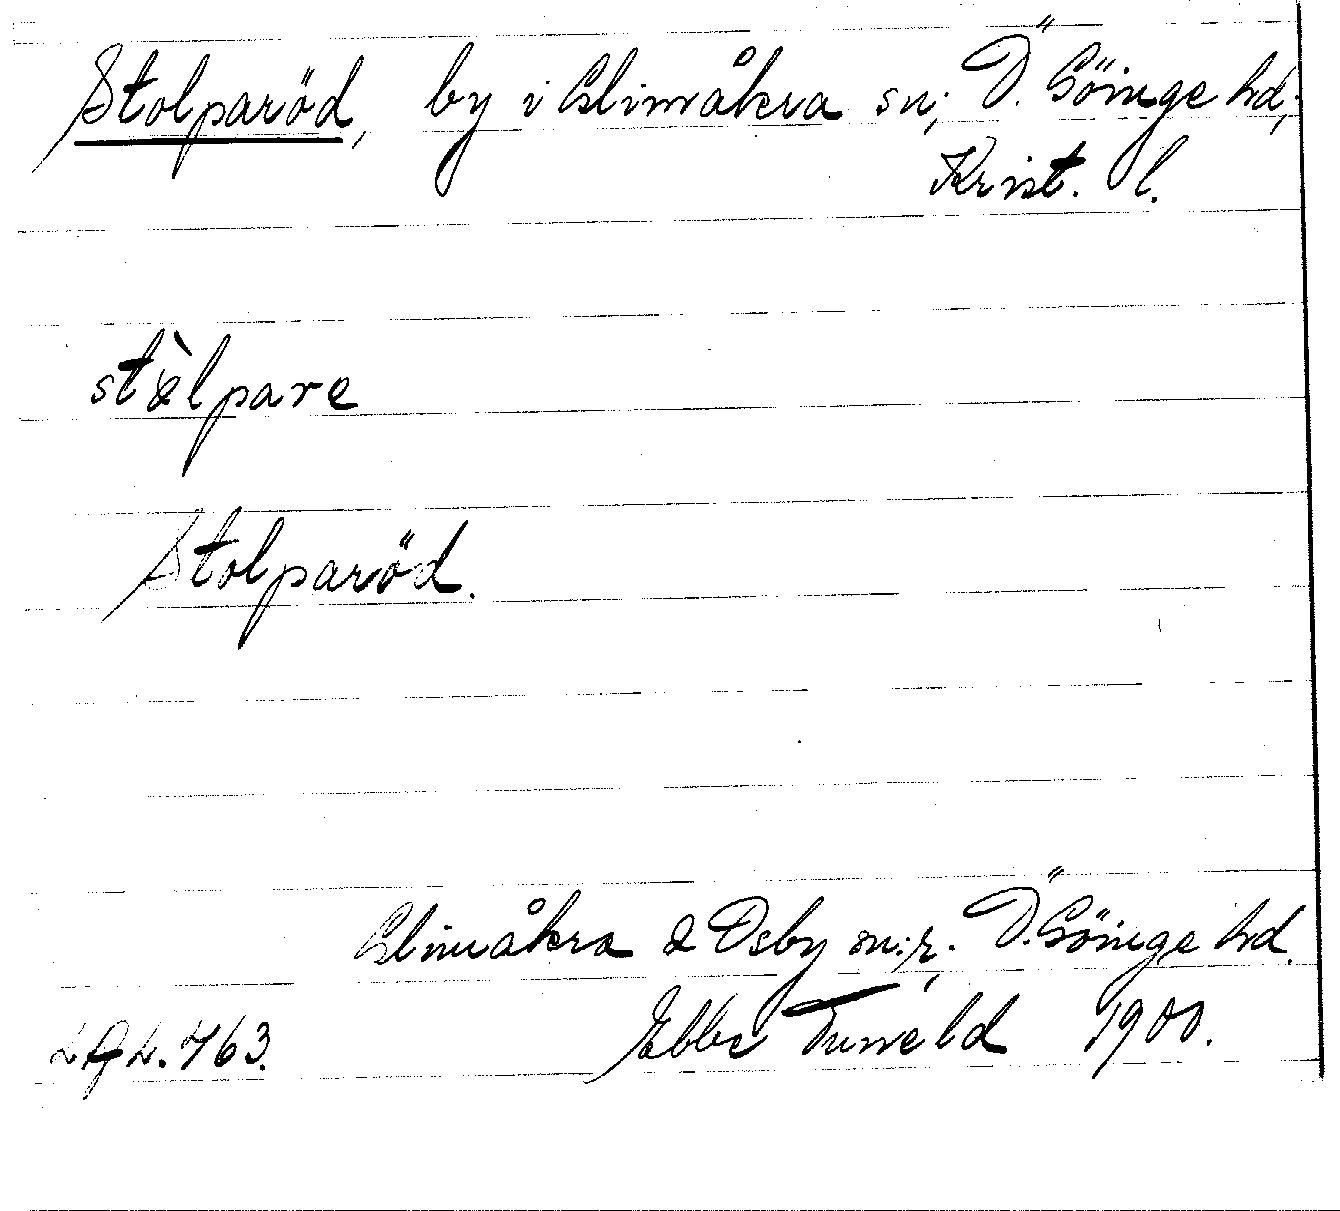 Stolparöd, by i Glimåkra sn; Ö. Göinge hd;
Krist. l.
stòlpare
Stolparöd.
Glimåkra & Osby sn:r. Ö. Göinge hd.
Ebbe Tuneld 1900.
763.